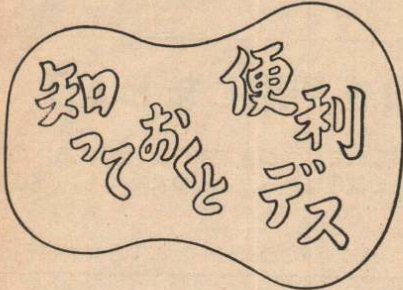 知っておくと
便利デス